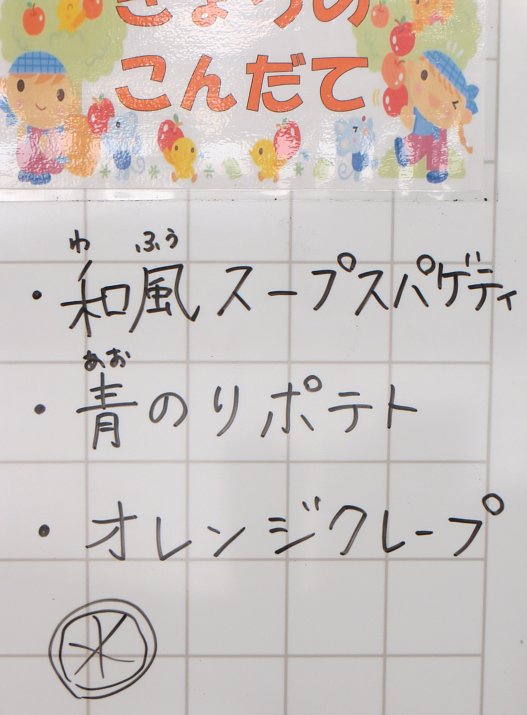 きょうの
こんだて
わ ふう
・和風スープスパゲティ
あお
・青のりポテト
・オレンジクレープ